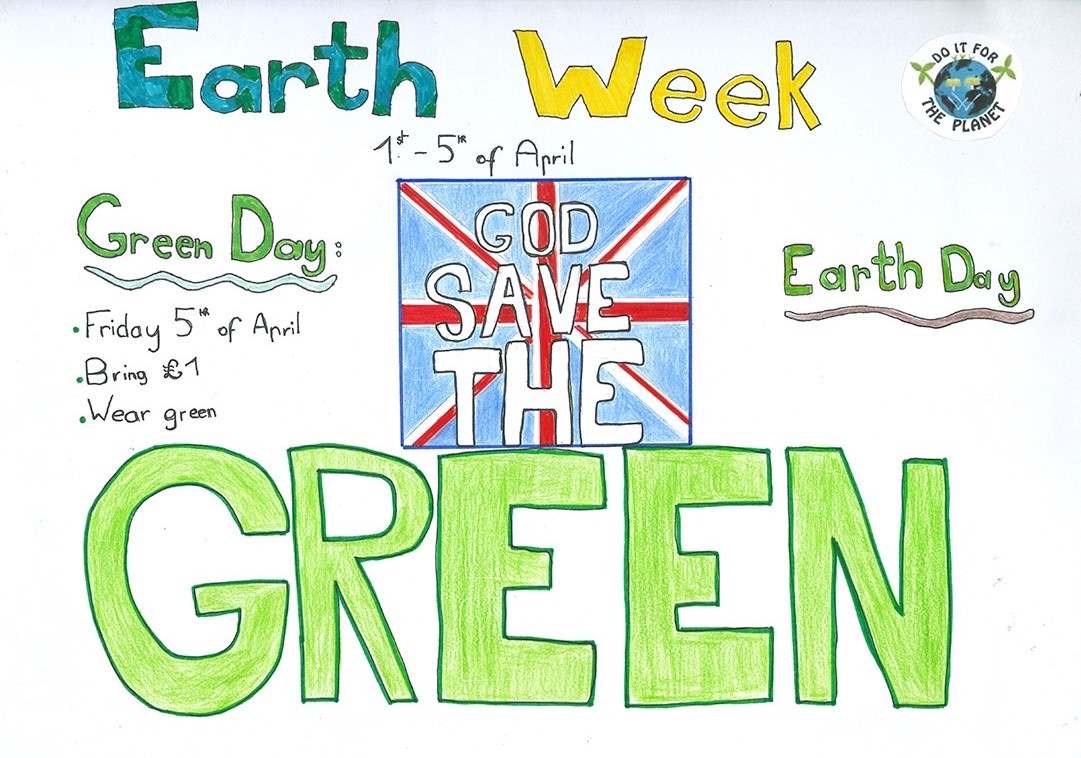 Earth Week
DO IT FOR
THE PLANET
1st - 5th of April
Green Day:
• Friday 5th of April
• Bring £1
• Wear green
GOD
SAVE
THE
GREEN
Earth Day